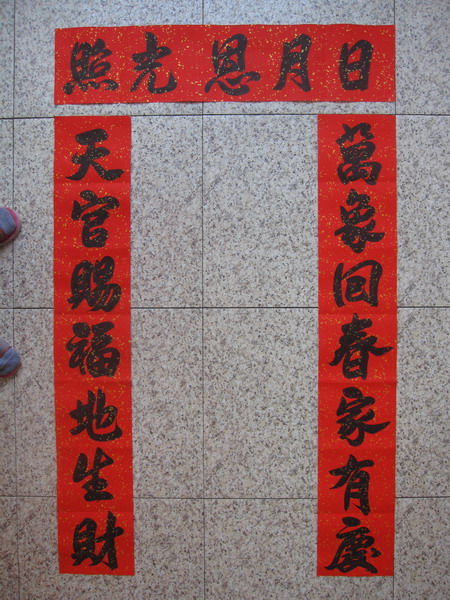 日月恩光照
萬象回春家有慶
天官賜福地生財